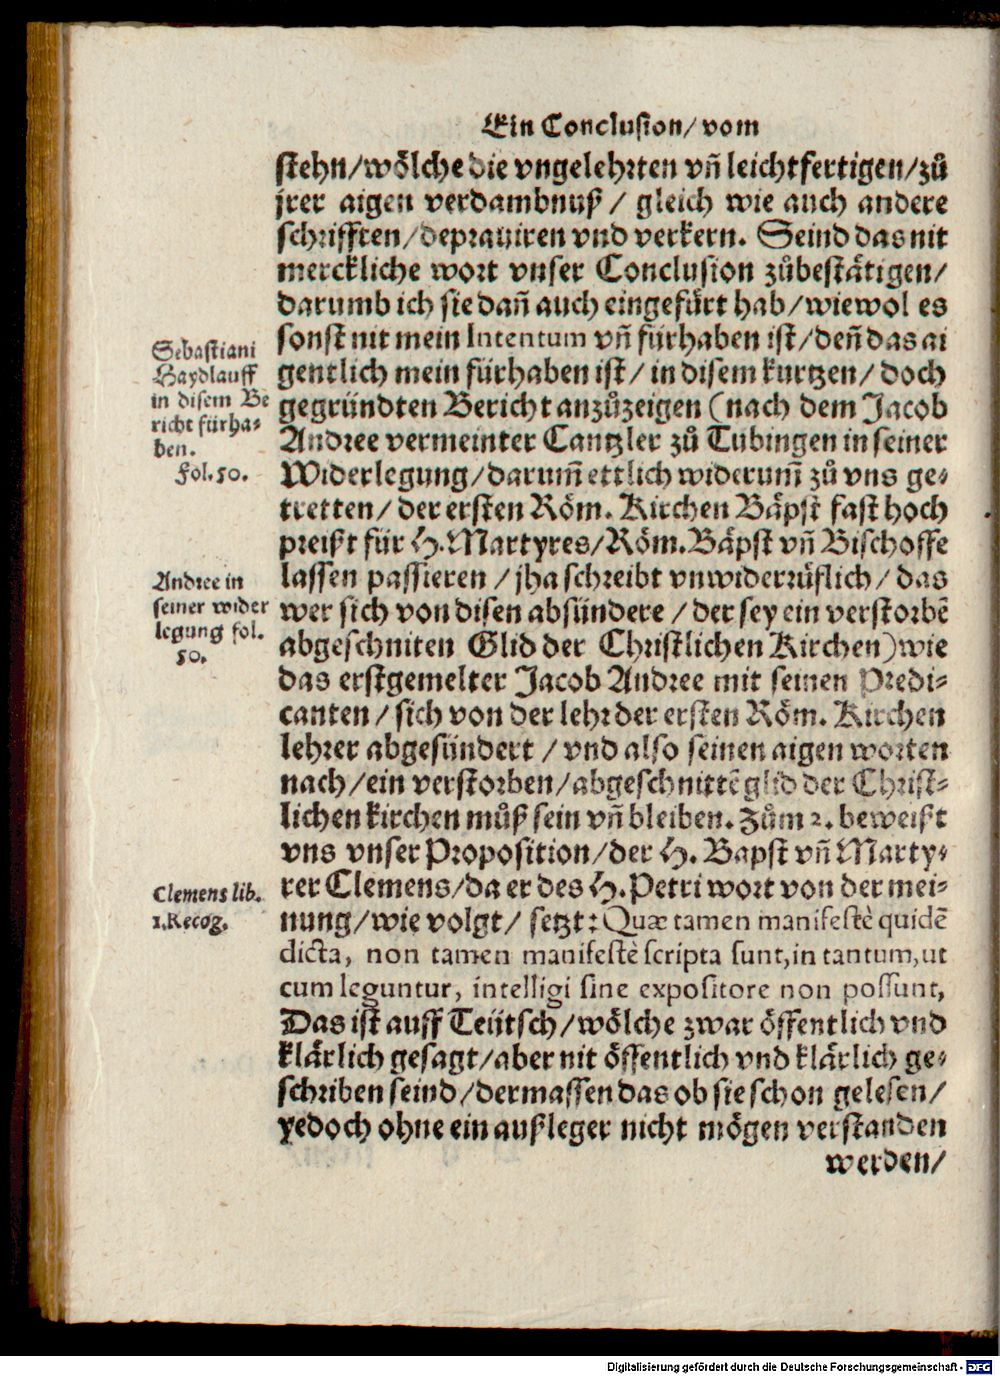 Ein Conclusion/ vom
stehn/wölche die vngelehrten vñ leichtfertigen/zů
jrer aigen verdambnuß / gleich wie auch andere
schrifften/deprauiren vnd verkern. Seind das nit
merckliche wort vnser Conclusion zůbestätigen/
darumb ich sie dañ auch eingefürt hab/wiewol es
sonst nit mein Intentum vñ fürhaben ist/deñ das ai
gentlich mein fürhaben ist/ in disem kurtzen/ doch
gegründten Bericht anzůzeigen (nach dem Jacob
Andree vermeinter Cantzler zů Tubingen in seiner
Widerlegung/darum̃ ettlich widerum̃ zů vns ge-
tretten/ der ersten Röm. Kirchen Bäpst fast hoch
preißt für H. Martyres/Röm. Bäpst vñ Bischoffe
lassen passieren /jha schreibt vnwiderrüflich/ das
wer sich von disen absündere /der sey ein verstorbẽ
abgeschniten Glid der Christlichen Kirchen)wie
das erstgemelter Jacob Andree mit seinen Predi-
canten/ sich von der lehr der ersten Röm. Kirchen
lehrer abgesündert /vnd also seinen aigen worten
nach/ein verstorben/abgeschnittẽ glid der Christ-
lichen kirchen můß sein vñ bleiben. Zům 2. beweißt
vns vnser Proposition/der H. Bapst vñ Marty-
rer Clemens/da er des H. Petri wort von der mei-
nung/wie volgt/ setzt: Quæ tamen manifestè quidẽ
dicta, non tamen manifestè scripta sunt, in tantum, ut
cum leguntur, intelligi sine expositore non possunt,
Das ist auff Teütsch/wölche zwar öffentlich vnd
klärlich gesagt/aber nit öffentlich vnd klärlich ge-
schriben seind/dermassen das ob sie schon gelesen/
yedoch ohne ein außleger nicht mögen verstanden
werden/
Sebastiani
Haydlauff
in disem Be
richt fürha-
ben.
Fol. 50.
Andree in
seiner wider
legung fol.
50.
Clemens lib.
1. Recog.
Digitalisierung gefördert durch die Deutsche Forschungsgemeinschaft - DFG